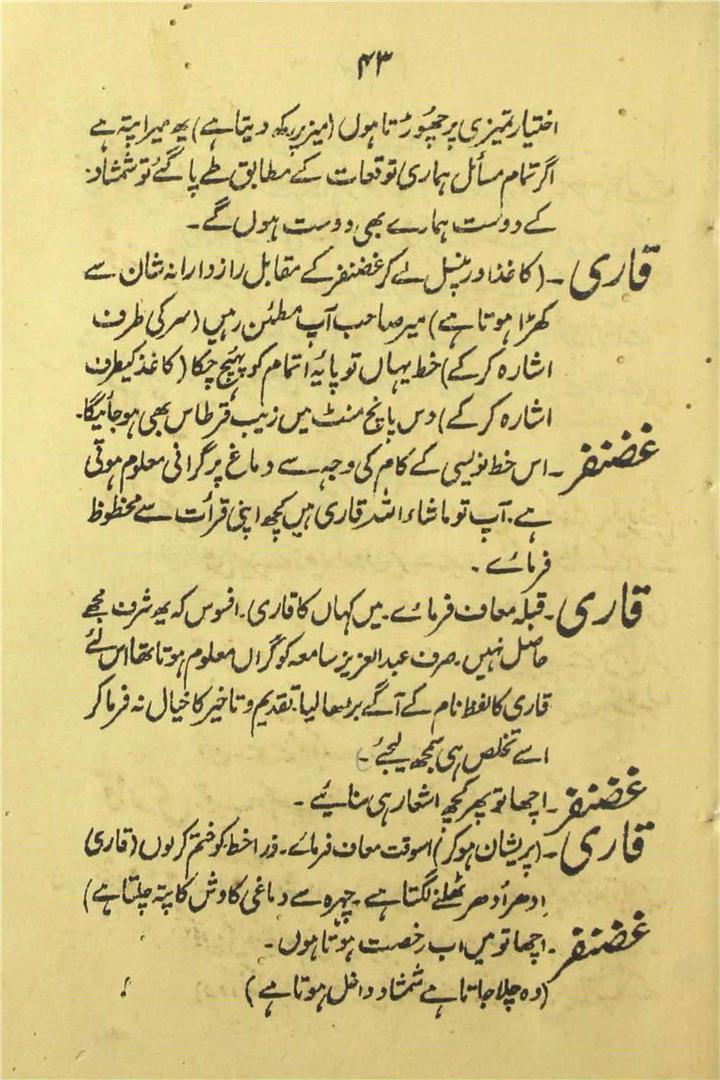 ۴۳
اختیار تمیزی پر چھوڑتا ہوں (میز پر رکھ دیتا ہے) یہ میرا پتہ ہے
اگر تمام مسائل ہماری توقعات کے مطابق طے پا گئے تو شمشاد
کے دوست ہمارے بھی دوست ہوں گے۔
قاری ۔ (کاغذ اور پنسل لے کر غضنفر کے مقابل رازدارانہ شان سے
کھڑا ہوتا ہے) میر صاحب آپ مطمئن رہیں (سر کی طرف
اشارہ کر کے) خط یہاں تو پایۂ اتمام کو پہنچ چکا (کاغذ کیطرف
اشارہ کر کے) دس پانچ منٹ میں زیب قرطاس بھی ہو جائیگا۔
غضنفر ۔ اس خط نویسی کے کام کی وجہ سے دماغ پر گرانی معلوم ہوتی
ہے۔ آپ تو ماشاء اللہ قاری ہیں کچھ اپنی قرأت سے محظوظ
فرمائے ۔
قاری ۔ قبلہ معاف فرمائے۔ میں کہاں کا قاری۔ افسوس کہ یہ شرف مجھے
حاصل نہیں۔ صرف عبدالعزیز سامعہ کو گراں معلوم ہوتا تھا اس لئے
قاری کا لفظ نام کے آگے بڑھا لیا۔ تقدیم و تاخیر کا خیال نہ فرما کر
اسے تخلص ہی سمجھ لیجئے ۔
غضنفر ۔ اچھا تو پھر کچھ اشعار ہی سنائیے ۔
قاری ۔ (پریشان ہو کر) اسوقت معاف فرمائے۔ ذرا خط کو ختم کر لوں (قاری
اِدھر اُدھر ٹھلنے لگتا ہے ۔ چہرہ سے دماغی کاوش کا پتہ چلتا ہے)
غضنفر ۔ اچھا تو میں اب رخصت ہوتا ہوں ۔
(وہ چلا جاتا ہے شمشاد داخل ہوتا ہے)